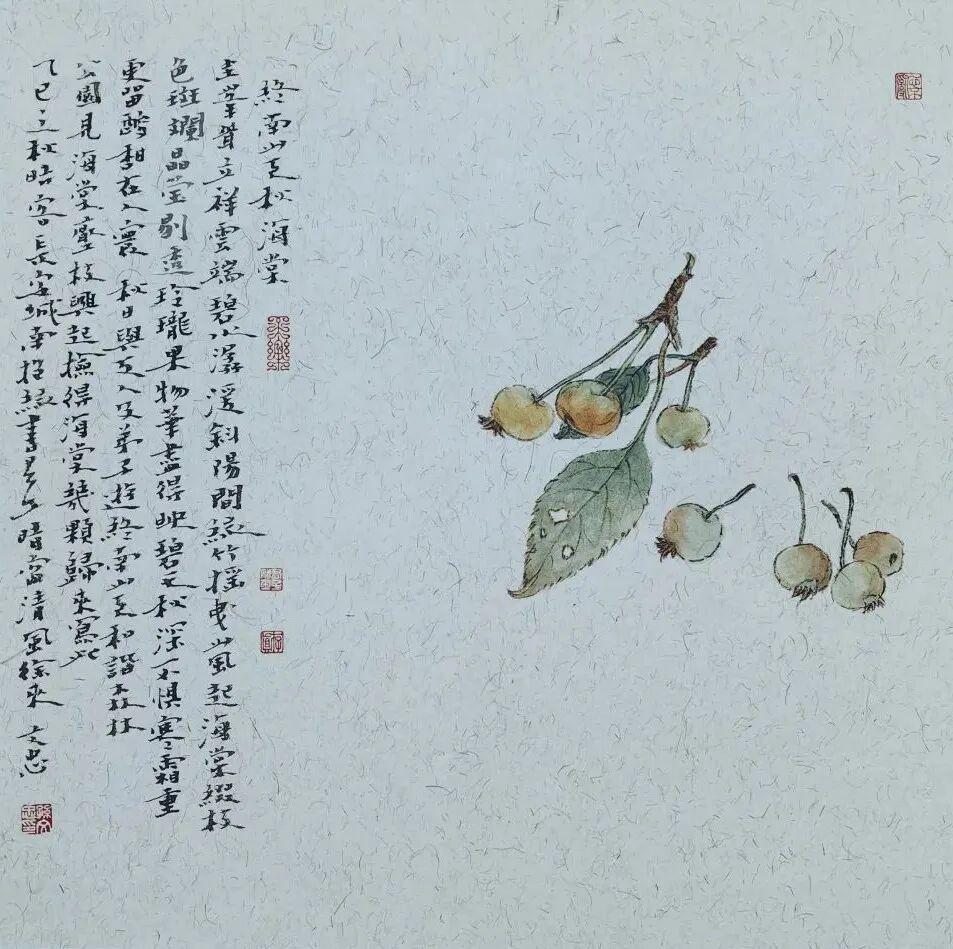 終南山之秋海棠
圭峯聳立祥雲端碧水潺湲斜陽間綠竹搖曳山風起海棠綴枝
色斑斕晶瑩剔透玲瓏果物華盡得映碧天秋深不懼寒霜重
更留酸甜在人寰 秋日與友人及弟子遊終南山之和諧森林
公園見海棠壓枝興起撫得海棠幾顆歸來寫此
乙巳立秋時客長安城南 書 晴窗清風徐來 文忠